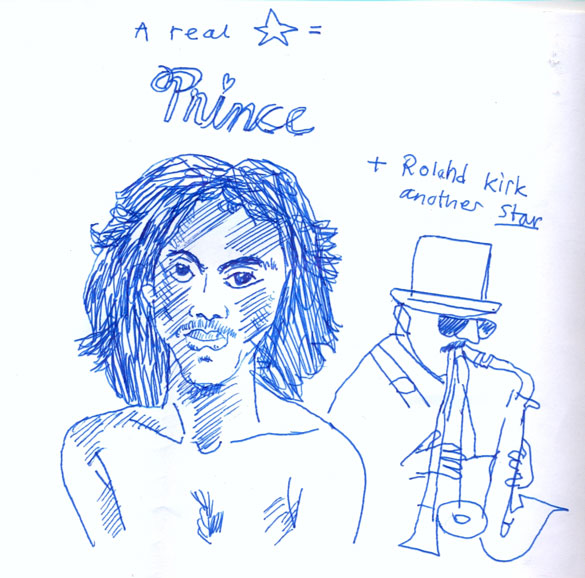 A real ☆ =
Prince
+ Roland Kirk
another Star